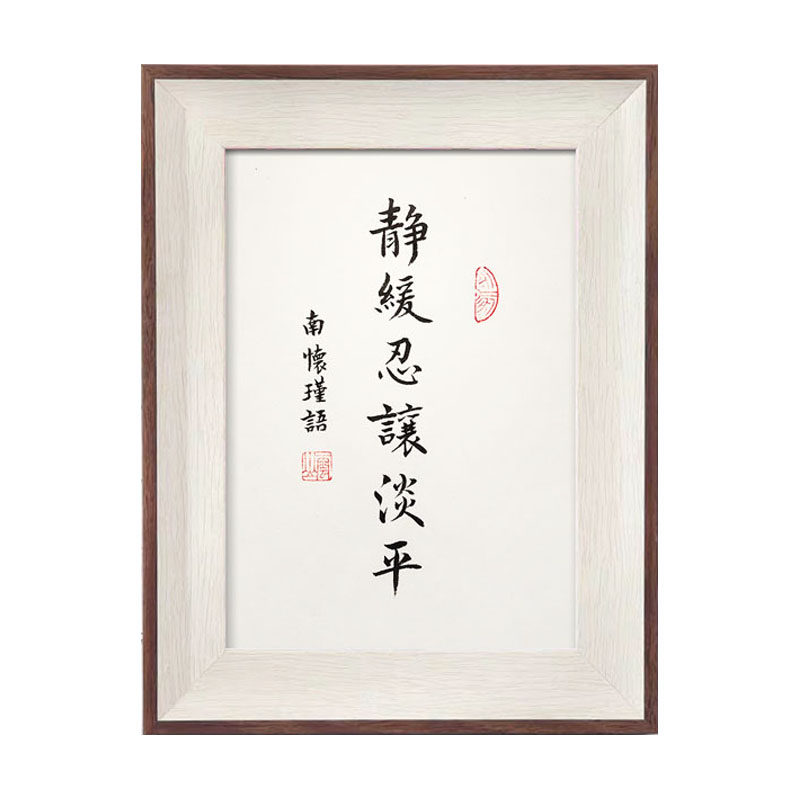 静緩忍讓淡平
南懷瑾語